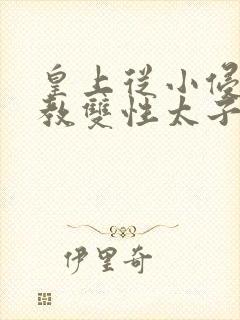 皇上從小
教雙性太子
伊里奇